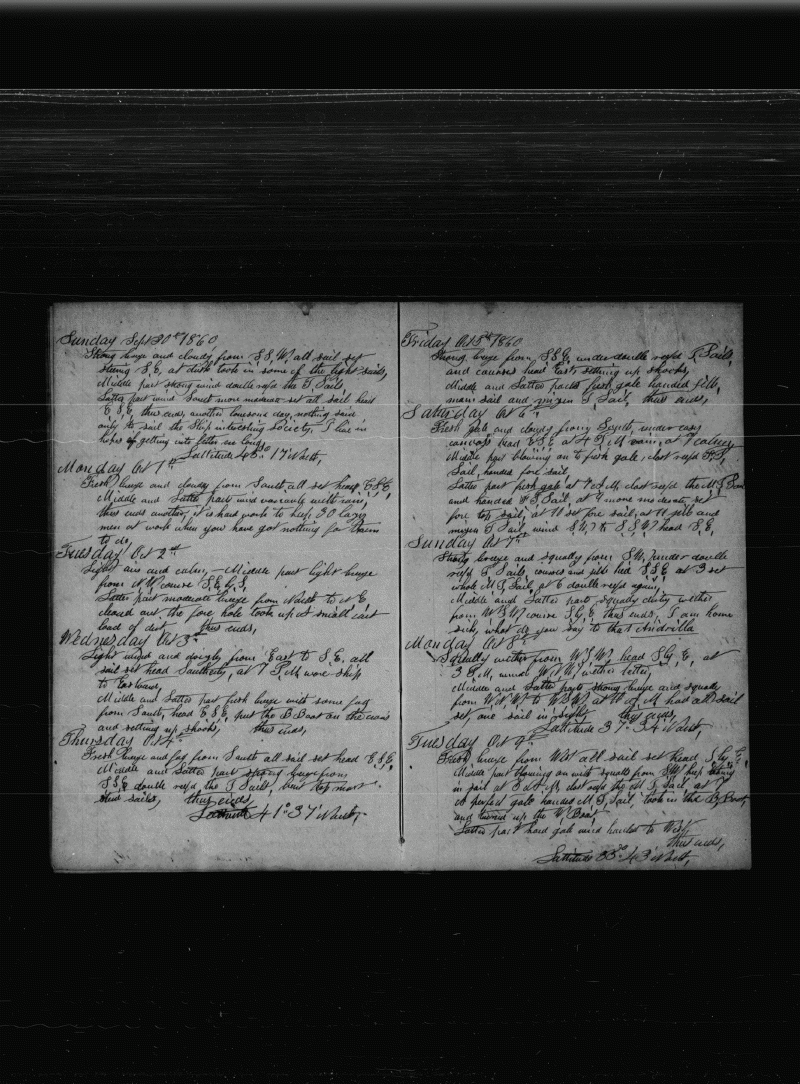 Sunday Sept 30th 1860,
Strong breeze and cloudy from S.S.W. all sail set
steering S.E. at dark took in some of the light sails,
Middle part strong wind double refd the T. Sails,
Latter part wind South more moderate set all sail head
E.S.E. thus ends another lonesome day, nothing said
only to sail the Ship interesting society, I live in
hopes of getting into falter ere long
Lattitude 43° 17' North,
Monday Oct 1st
Fresh breeze and cloudy from South all set head E.S.E.
Middle and Latter parts wind with rain,
thus ends another, it is hard work to keep 30 lazy
men at work when you have got nothing for them
to do,
Tuesday Oct 2nd
Light airs and calm, Middle part light breeze
from N.W. course S.E.
Latter part moderate breeze from North to N.E.
cleared out the fore hole took up a small cart
load of dirt, thus ends,
Wednesday Oct 3rd
Light wind and from East to S.E. all
sail set head Southerly, at 7 P.M. wore ship
to Eastward,
Middle and Latter part fresh breeze with some fog
from South, head E.S.E. put the B Boat on the cranes
and setting up shooks, thus ends,
Thursday Oct 4th
Fresh breeze and fog from South all sail set head E.S.E.
Middle and Latter part strong breeze from
S.S.E. double refd the T Sails, bent top mast
stud sailes, thus ends,
Lattitude 41° 37' North,
Friday Oct 5th 1860
Strong breeze from S.S.E. under double refd T. Sails,
and courses head East setting up shooks,
Middle and Latter parts fresh gale handed jibb,
main sail and mizen T. Sail, thus ends,
Saturday Oct 6th
Fresh gale and cloudy from South, under easy
canvass head E.S.E. at 4 P.M. rain, at 7
Middle part blowing on to fresh gale, close refd T.
Sail, handed fore sail,
Latter part fresh gale at 7 A.M. close refd the M.T. Sail
and handed F.T. Sail, at 9 more moderate, set
fore top sail, at 11 set fore sail, at 11 jibb and
mizen T. Sail, wind S.W. to S.S.W. head S.E.
Sunday Oct 7th
Strong breeze and squally from S.W. under double
refd T. Sails, courses and jibb head S.S.E. at 3 set
whole M.T. Sail, at 6 double refd again,
Middle and Latter part, squally dirty wether
from W.S.W. course S.E. thus ends, I am home
sick, what do you say to that Andrilla
Monday Oct 8th
Squally wether from W.S.W. head S.E. at
3 P.M. wind W.N.W. wether better,
Middle and Latter parts strong breeze and squally
from W.N.W. to W.S.W. at 11 A.M. had all sail
set one sail in sight, thus ends,
Lattitude 37° 34' North,
Tuesday Oct 9th
Fresh breeze from West all sail set head S. by E.
Middle part blowing on with squalls from S.W. kept taking
in sail at 3 A.M. close refd the M.T. Sail, at 7
A perfect gale handed M.T. Sail, took in the B. Boat,
and turned up the W. Boat,
Latter part hard gale wind handed to West,
thus ends,
Lattitude 35° 43' North,